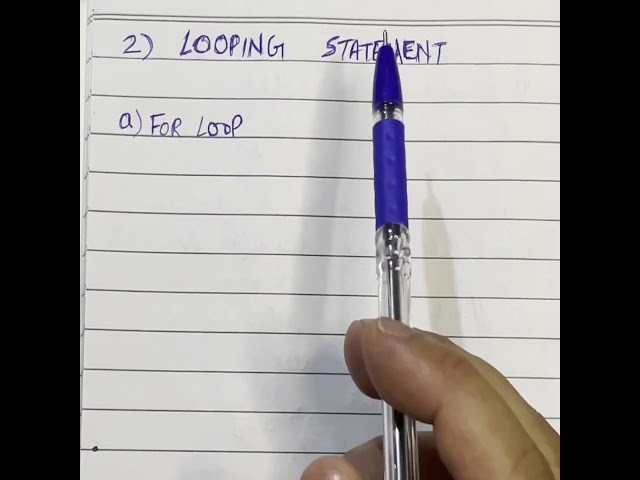 2) LOOPING STATEMENT
a) FOR LOOP